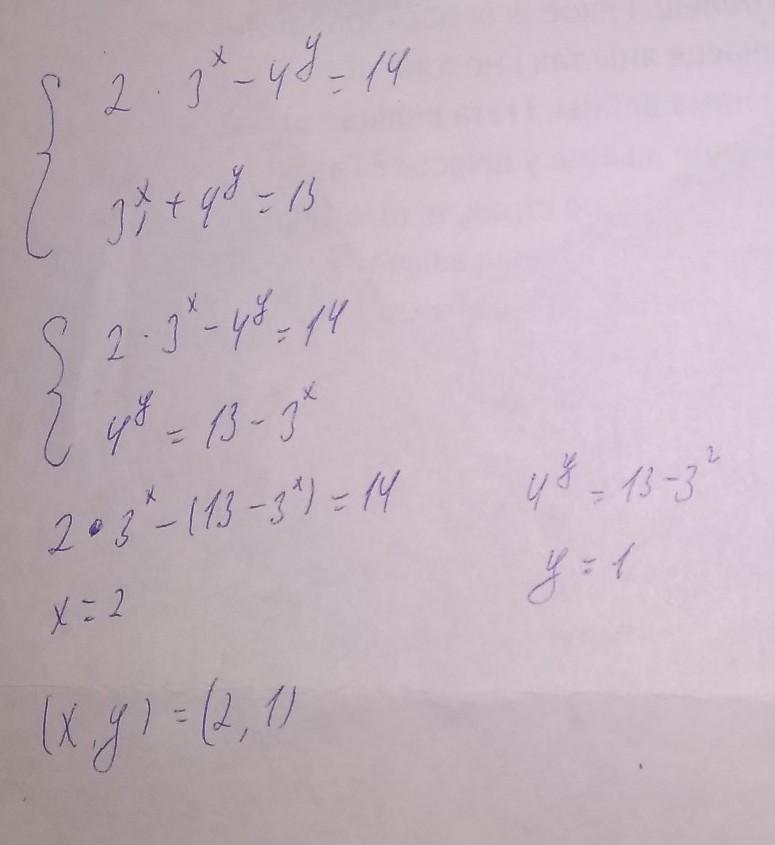 2 · 3^x − 4^y = 14
3^x + 4^y = 13
2 · 3^x − 4^y = 14
4^y = 13 − 3^x
2 · 3^x − (13 − 3^x) = 14
x = 2
4^y = 13 − 3^2
y = 1
(x, y) = (2, 1)